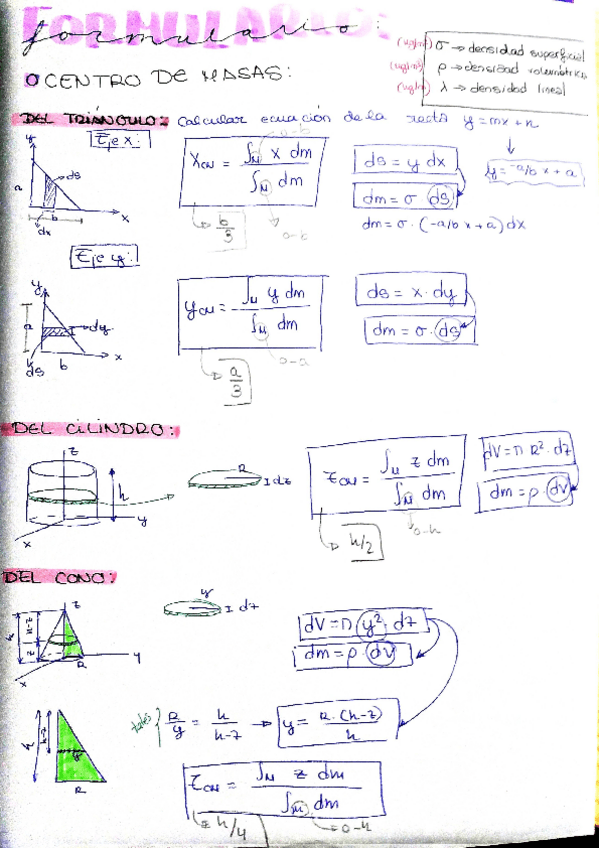 FORMULARIO:
formulario:
(ug/m²) σ → densidad superficial
(ug/m³) ρ → densidad volumétrica
(ug/m) λ → densidad lineal
○ CENTRO DE MASAS:
DEL TRIÁNGULO: Calcular ecuación de la recta y = mx + n
Eje x:
y
a
ds
b
x
dx
X_CM = ∫_M x dm / ∫_M dm
a-b
0-b
b/3
ds = y dx
dm = σ ds
dm = σ · (-a/b x + a) dx
y = -a/b x + a
Eje y:
y
a
dy
ds
b
x
y_CM = ∫_M y dm / ∫_M dm
0-a
a/3
ds = x · dy
dm = σ · ds
DEL CILINDRO:
z
h
y
x
R
I dz
z_CM = ∫_M z dm / ∫_M dm
0-h
h/2
dV = π R² · dz
dm = ρ · dV
DEL CONO:
z
h
h-z
z
R
y
x
y
I dz
dV = π y² · dz
dm = ρ · dV
h
h-z
y
R
tales { R/y = h/h-z → y = R · (h-z)/h
z_CM = ∫_M z dm / ∫_M dm
= h/4
0-h